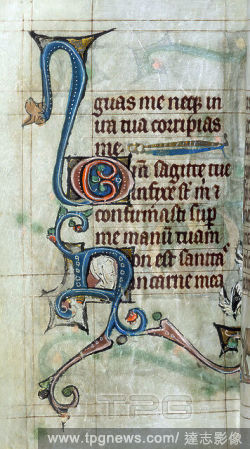 guas me neqʒ in
ira tua corripias
me
Qm̄ sagitte tue
infixe st̄ m̄ ⁊
confirmasti sup̄
me manū tuam
Non est sanita
in carne mea
TPG
www.tpgnews.com/ 達志影像